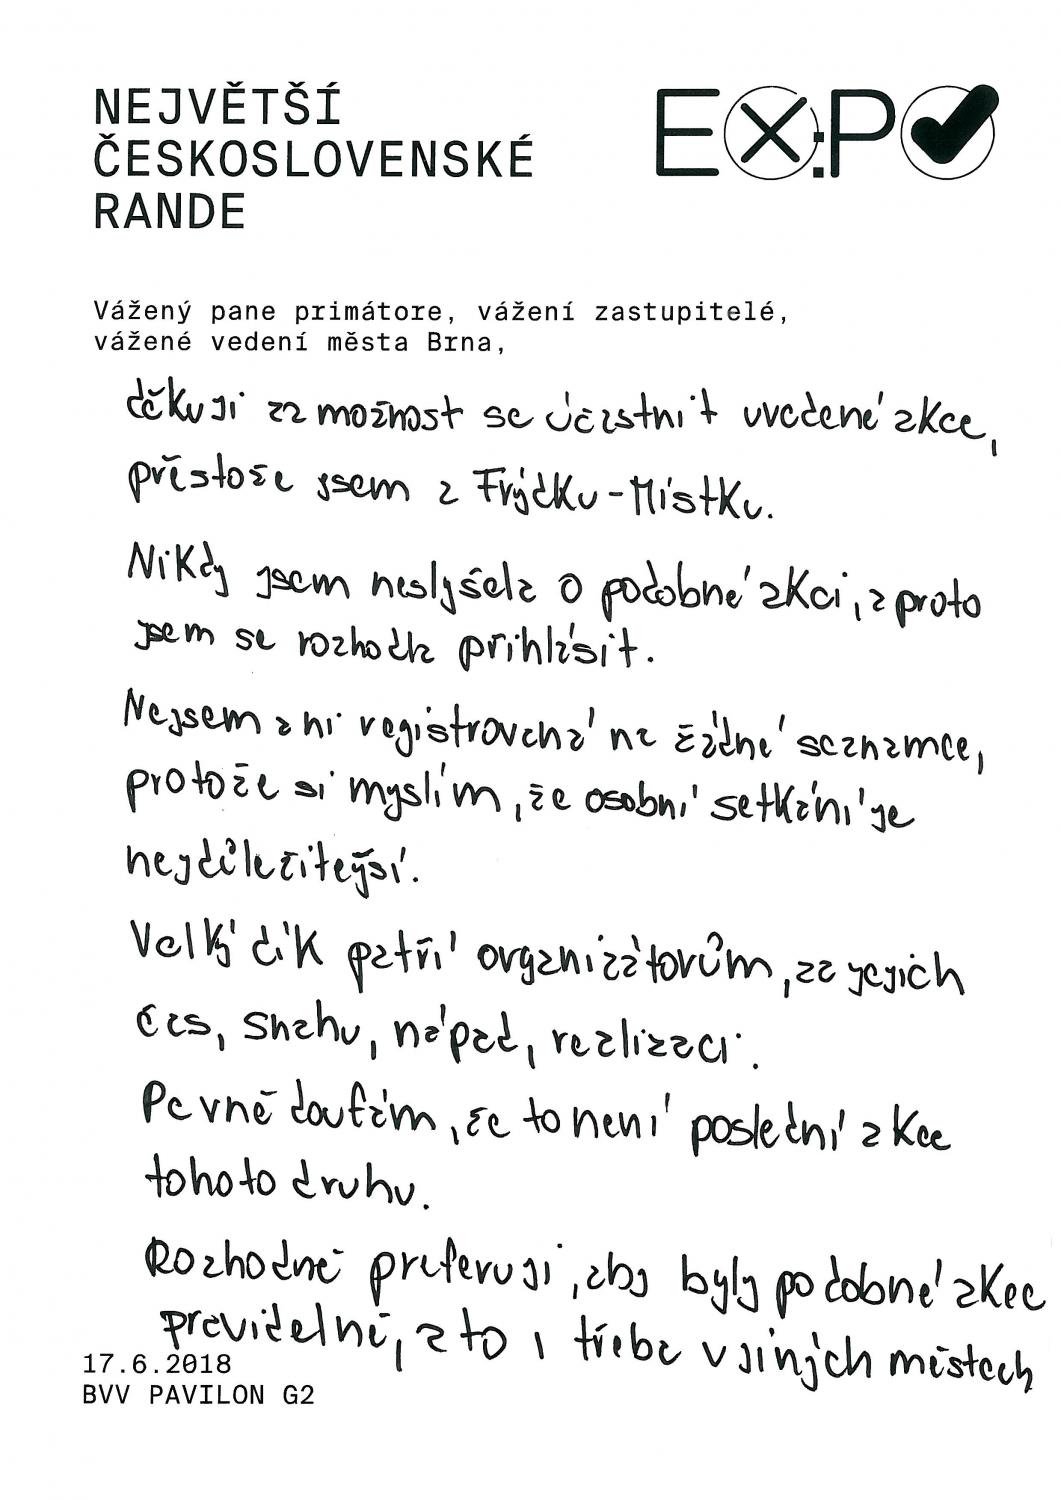 NEJVĚTŠÍ
ČESKOSLOVENSKÉ
RANDE
EX:PO
Vážený pane primátore, vážení zastupitelé,
vážené vedení města Brna,
děkuji za možnost se účastnit uvedené akce,
přestože jsem z Frýdku-Místku.
Nikdy jsem neslyšela o podobné akci, a proto
jsem se rozhodla přihlásit.
Nejsem ani registrovaná na žádné seznamce,
protože si myslím, že osobní setkání je
nejdůležitejší.
Velký dík patří organizátorům, za jejich
čas, snahu, nápad, realizaci.
Pevně doufám, že to není poslední akce
tohoto druhu.
Rozhodně preferuji, aby byly podobné akce
pravidelné, a to i třeba v jiných městech
17.6.2018
BVV PAVILON G2